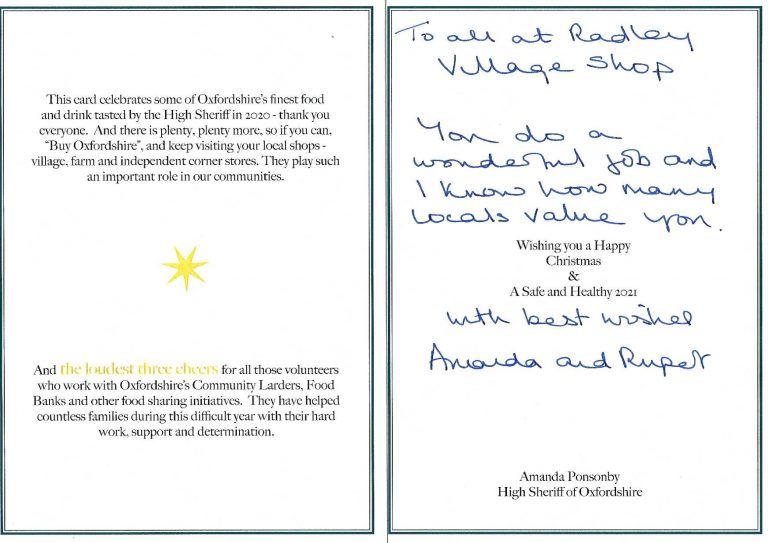 This card celebrates some of Oxfordshire's finest food
and drink tasted by the High Sheriff in 2020 - thank you
everyone. And there is plenty, plenty more, so if you can,
"Buy Oxfordshire", and keep visiting your local shops -
village, farm and independent corner stores. They play such
an important role in our communities.
And the loudest three cheers for all those volunteers
who work with Oxfordshire's Community Larders, Food
Banks and other food sharing initiatives. They have helped
countless families during this difficult year with their hard
work, support and determination.
To all at Radley
Village Shop
You do a
wonderful job and
I know how many
locals value you.
Wishing you a Happy
Christmas
&
A Safe and Healthy 2021
with best wishes
Amanda and Rupert
Amanda Ponsonby
High Sheriff of Oxfordshire